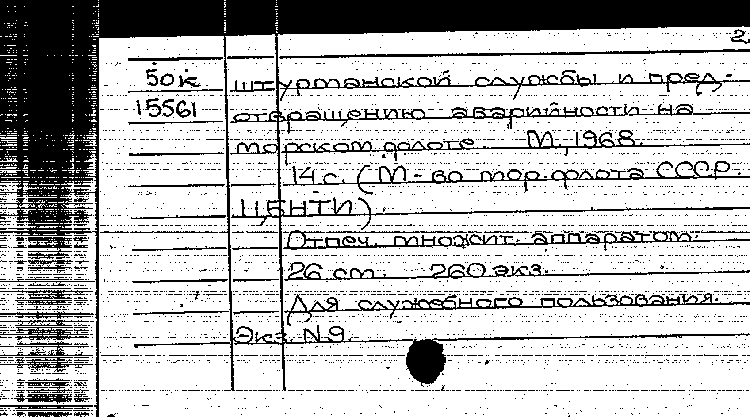 2.
50к штурманской службы и пред-
15561 отвращению аварийности на
морском флоте. М., 1968.
14 с. (М-во мор. флота СССР.
ЦБНТИ)
Отпеч. множит. аппаратом.
26 см. 260 экз.
Для служебного пользования.
Экз. N 9.